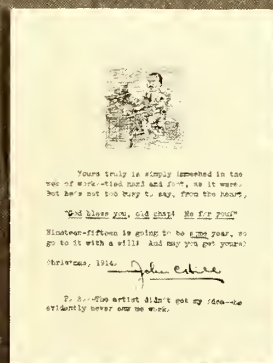 Yours truly is simply immeshed in the
web of work--tied hand and foot, as it were.
But he's not too busy to say, from the heart,
"God bless you, old chap! Me for you!"
Nineteen-fifteen is going to be some year, so
go to it with a will! And may you get yours!
Christmas, 1914.
P. S.--The artist didn't get my idea--he
evidently never saw me work.